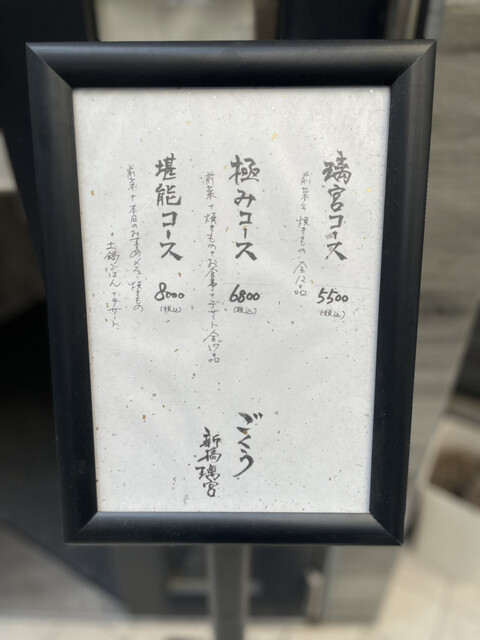 璃宮コース
5500
(税込)
前菜+焼きもの 全12品
極みコース
6800
(税込)
前菜+焼きもの+お食事+デザート 全17品
堪能コース
8000
(税込)
前菜+本日のおすすめ+焼きもの
+土鍋ごはん+デザート
ごくう
新橋璃宮